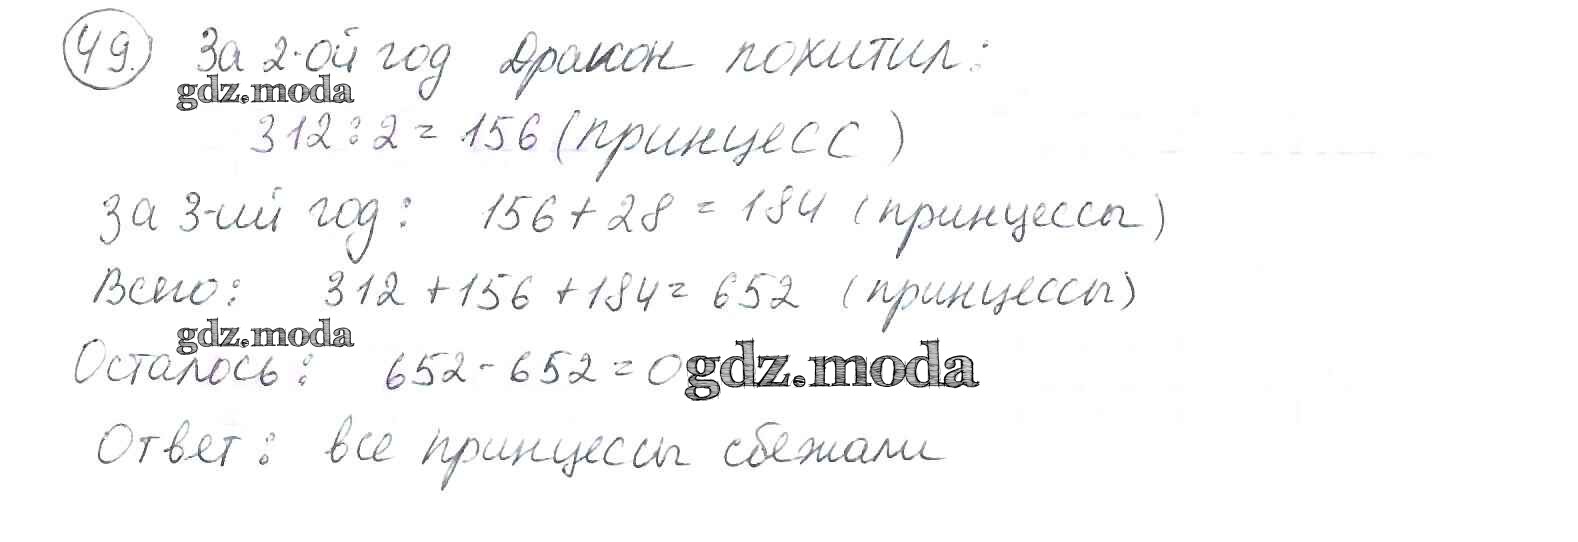 49. За 2-ой год Дракон похитил:
gdz.moda
312:2=156 (принцесс)
За 3-ий год: 156+28=184 (принцессы)
Всего: 312+156+184=652 (принцессы)
gdz.moda
Осталось: 652-652=0 gdz.moda
Ответ: все принцессы сбежали